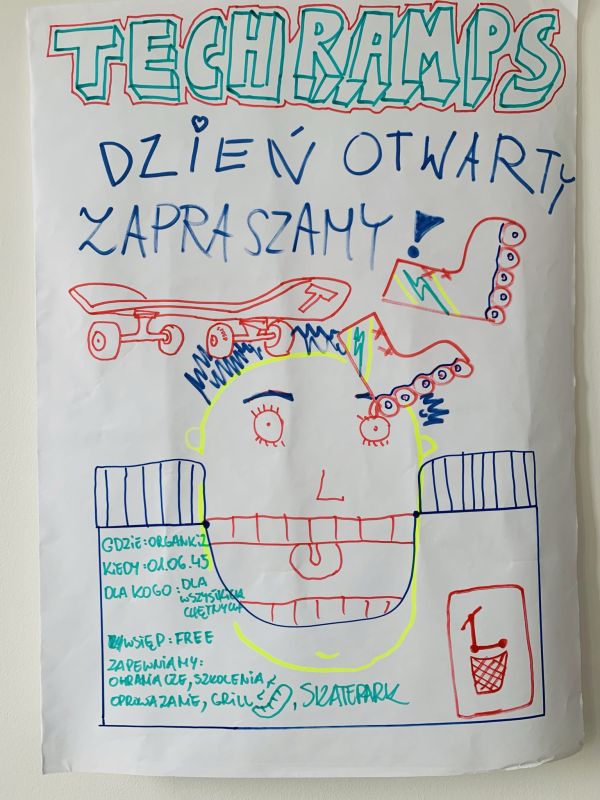 TECHRAMPS
DZIEŃ OTWARTY
ZAPRASZAMY!
T
GDZIE: ORGANKI 2
KIEDY: 01.06.45
DLA KOGO: DLA
WSZYSTKICH
CHĘTNYCH
WSTĘP: FREE
ZAPEWNIAMY:
OHRANIACZE, SZKOLENIA
OPROWAZANIE, GRILL, SKATEPARK